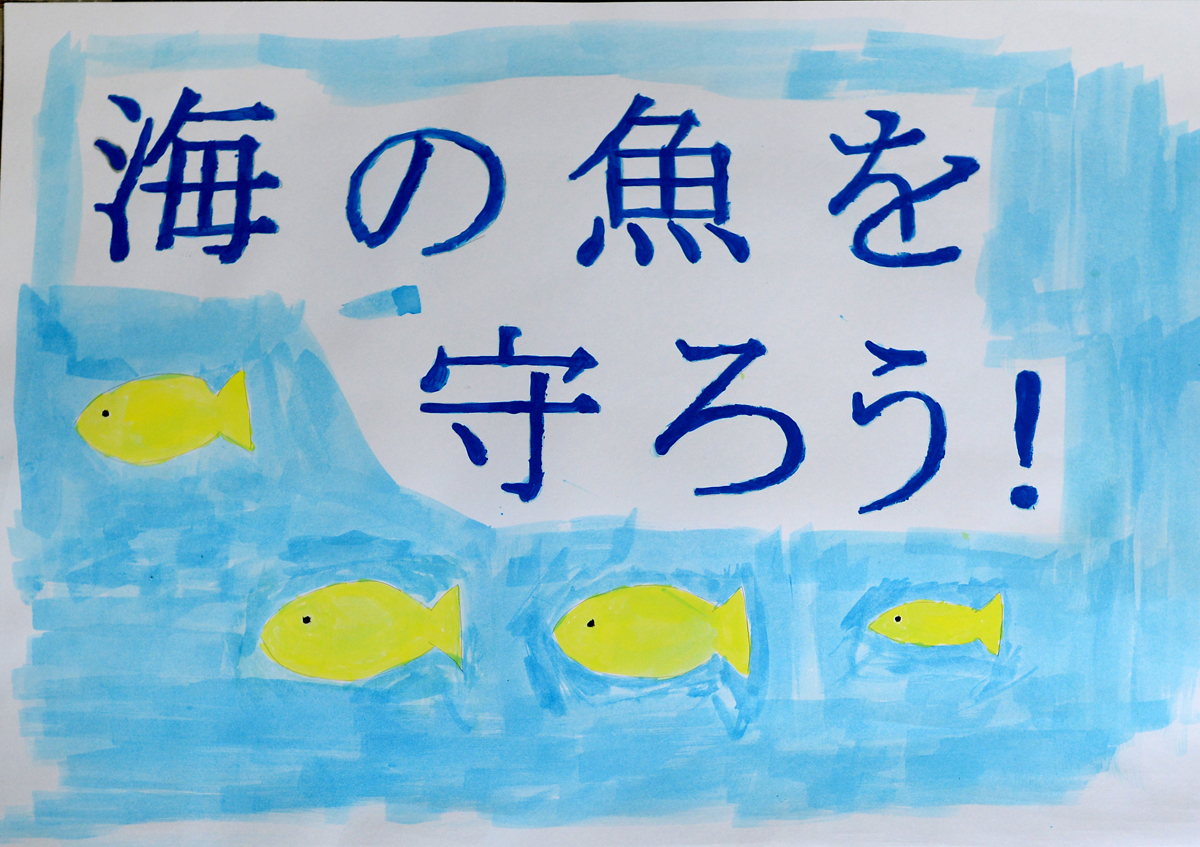 海の魚を
守ろう!